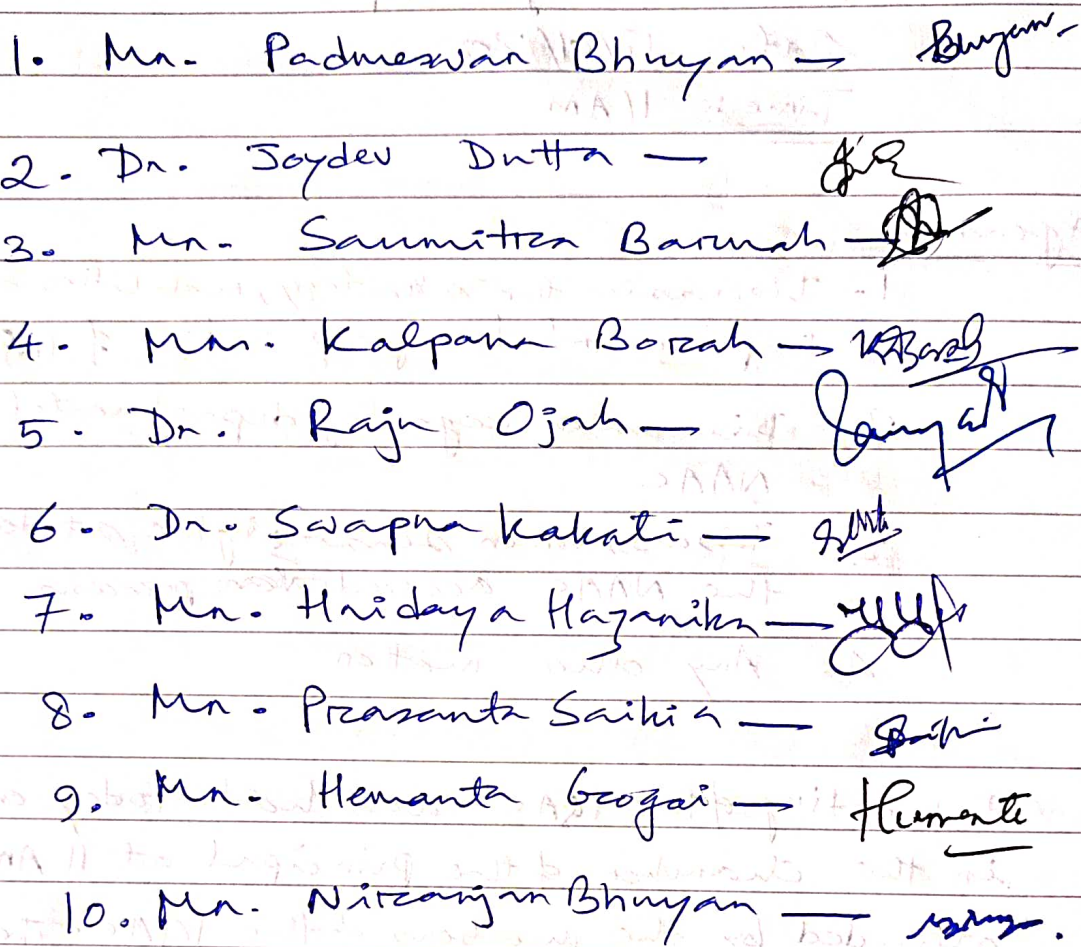 1. Mr. Padmeswar Bhuyan — Bhuyan
2. Dr. Joydev Dutta —
3. Mr. Saumitra Baruah —
4. Mrs. Kalpana Borah — KBorah
5. Dr. Raju Ojah —
6. Dr. Swapna Kakati —
7. Mr. Hridaya Hazarika —
8. Mr. Prasanta Saikia —
9. Mr. Hemanta Gogoi — Humante
10. Mr. Niranjan Bhuyan —